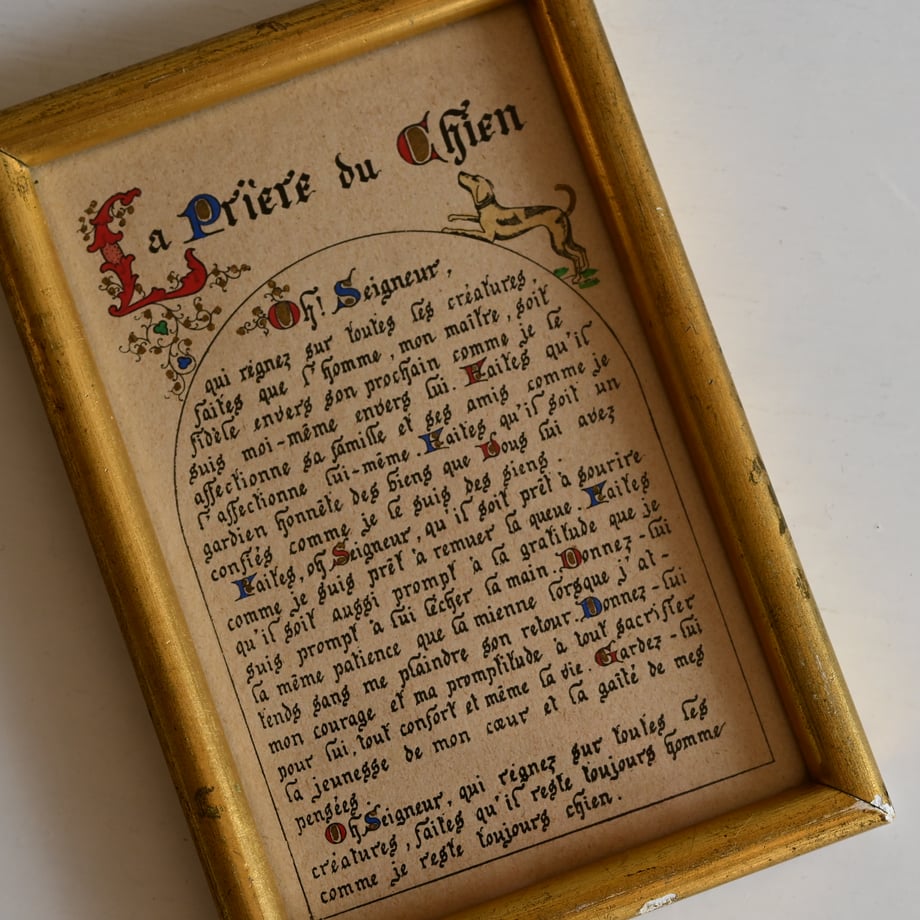 La Prière du Chien
Oh! Seigneur,
qui régnez sur toutes les créatures,
faites que l'homme, mon maître, soit
fidèle envers son prochain comme je le
suis moi-même envers lui. Faites qu'il
affectionne sa famille et ses amis comme je
l'affectionne lui-même. Faites qu'il soit un
gardien honnête des biens que Vous lui avez
confiés, comme je le suis des siens.
Faites, oh Seigneur, qu'il soit prêt à sourire
comme je suis prêt à remuer la queue. Faites
qu'il soit aussi prompt à la gratitude que je
suis prompt à lui lécher la main. Donnez-lui
la même patience que la mienne lorsque j'at-
tends sans me plaindre son retour. Donnez-lui
mon courage et ma promptitude à tout sacrifier
pour lui, tout confort et même la vie. Gardez-lui
la jeunesse de mon cœur et la gaîté de mes
pensées.
Oh Seigneur, qui régnez sur toutes les
créatures, faites qu'il reste toujours homme
comme je reste toujours chien.